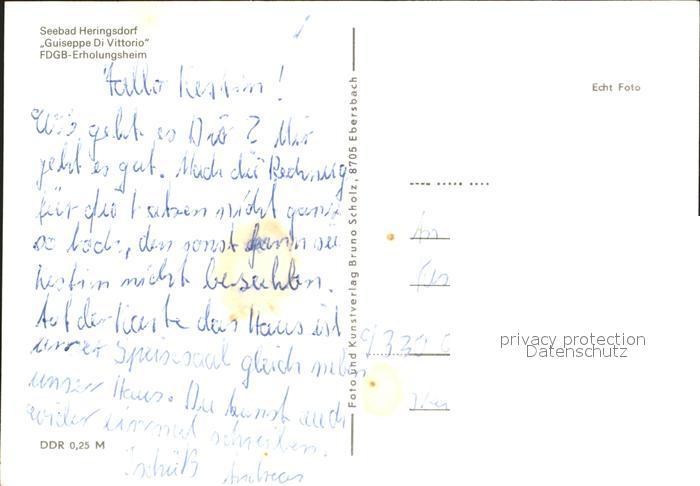 Seebad Heringsdorf
„Guiseppe Di Vittorio"
FDGB-Erholungsheim
Hallo Kerstin!
Wie geht es Dir? Mir
geht es gut. Mach die Rechnung
für die Katzen nicht ganz
so hoch, den sonst kann sie
Kerstin nicht bezahlen.
Auf der Karte das Haus ist
unser Speisesaal gleich neben
unser Haus. Du kanst auch
wider einmal schreiben.
Tschüß Andreas
DDR 0,25 M
Foto und Kunstverlag Bruno Scholz, 8705 Ebersbach
Echt Foto
An
privacy protection
Datenschutz